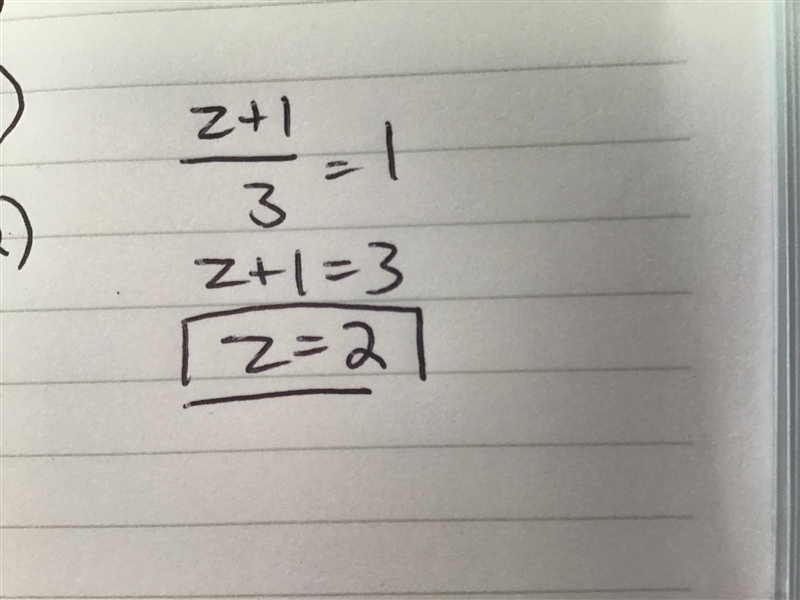 z+1
―― = 1
3
z+1=3
z=2